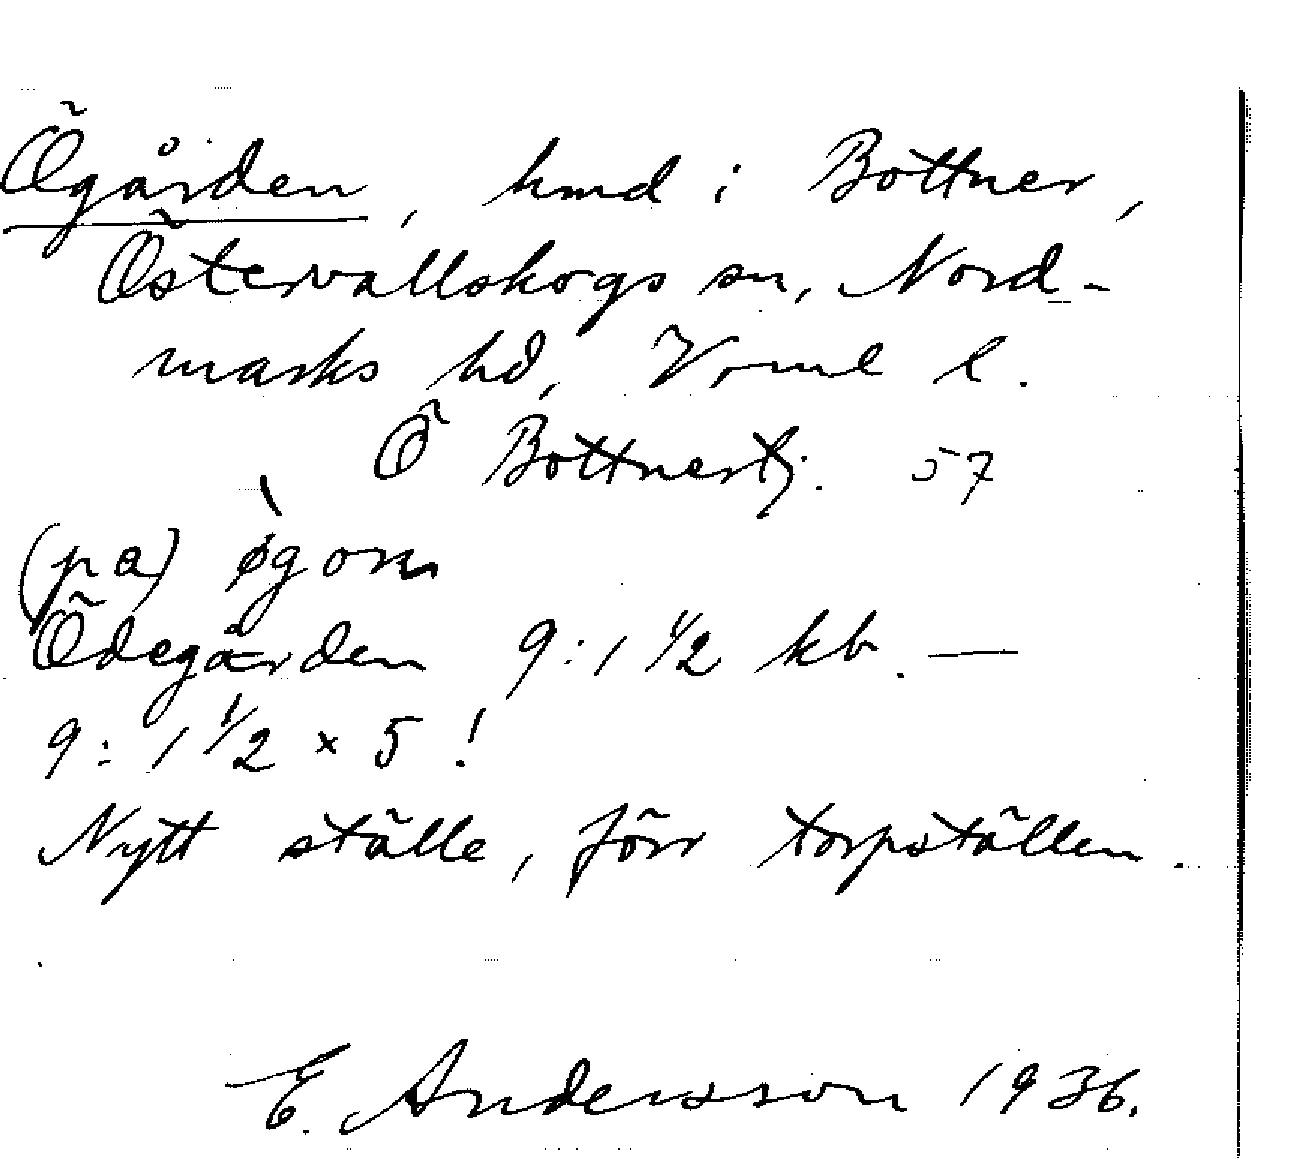 Ögården, hmd i Bottner,
Östervallskogs sn, Nord-
marks hd, Verml l.
Ö Bottnertj. 57
(på) øgorn
Ödegården 9:1 1/2 kb. —
9:1 1/2 × 5!
Nytt ställe, förr torpställen.
E. Andersson 1936.